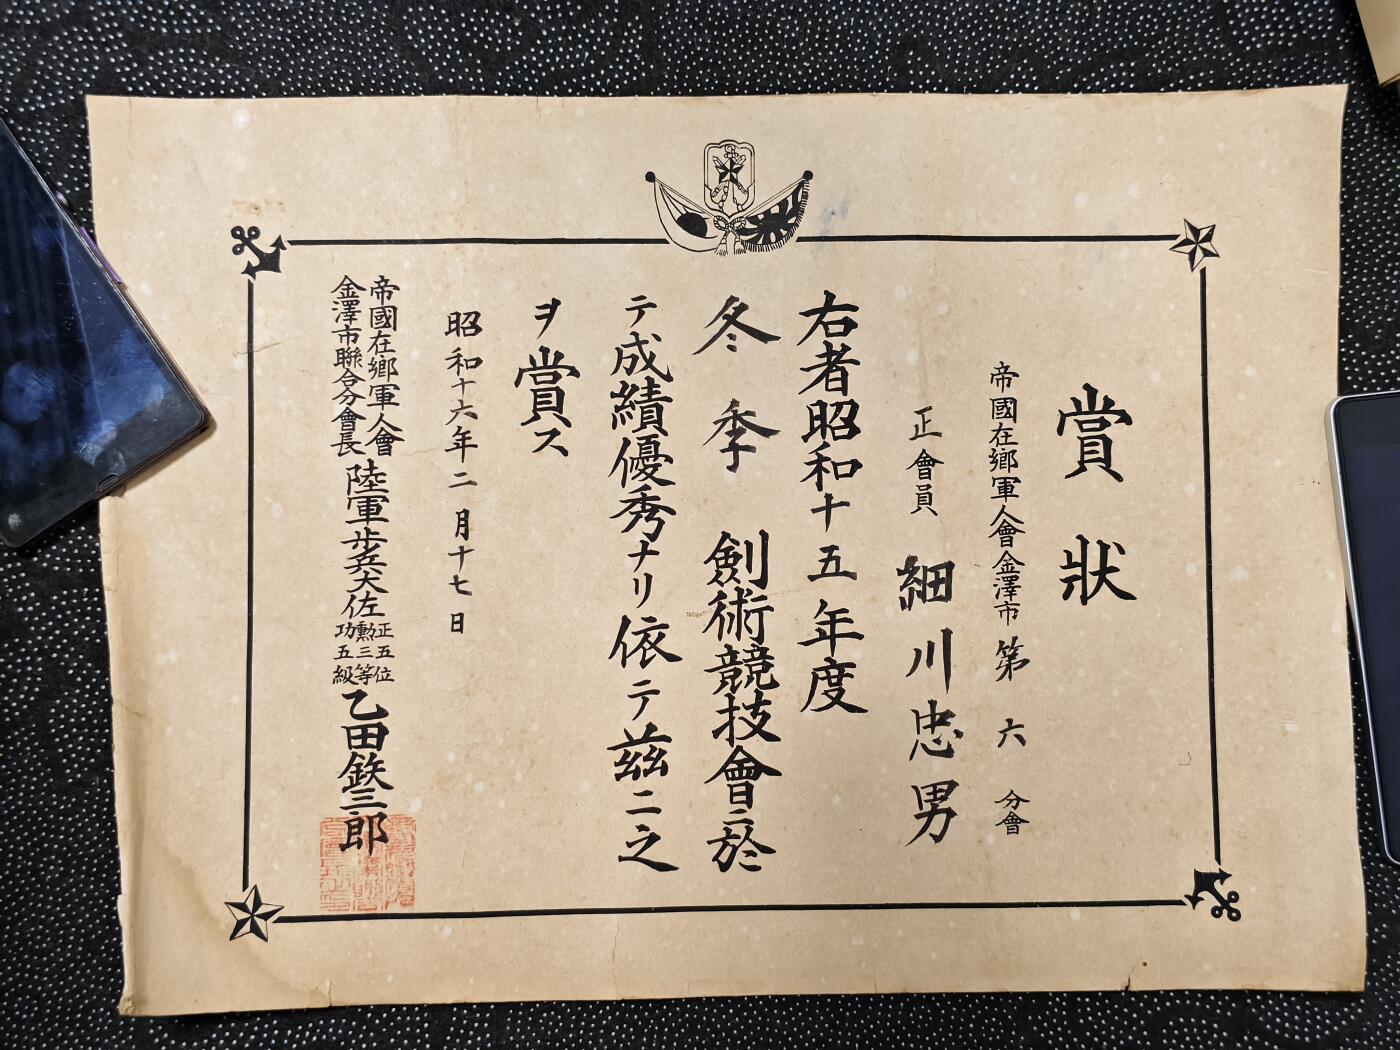 賞狀
帝國在鄉軍人會金澤市第六分會
正會員 細川忠男
右者昭和十五年度
冬季劍術競技會ニ於
テ成績優秀ナリ依テ茲ニ之
ヲ賞ス
昭和十六年二月十七日
帝國在鄉軍人會
金澤市聯合分會長
陸軍步兵大佐
正五位
勲三等
功五級
乙田鉄三郎